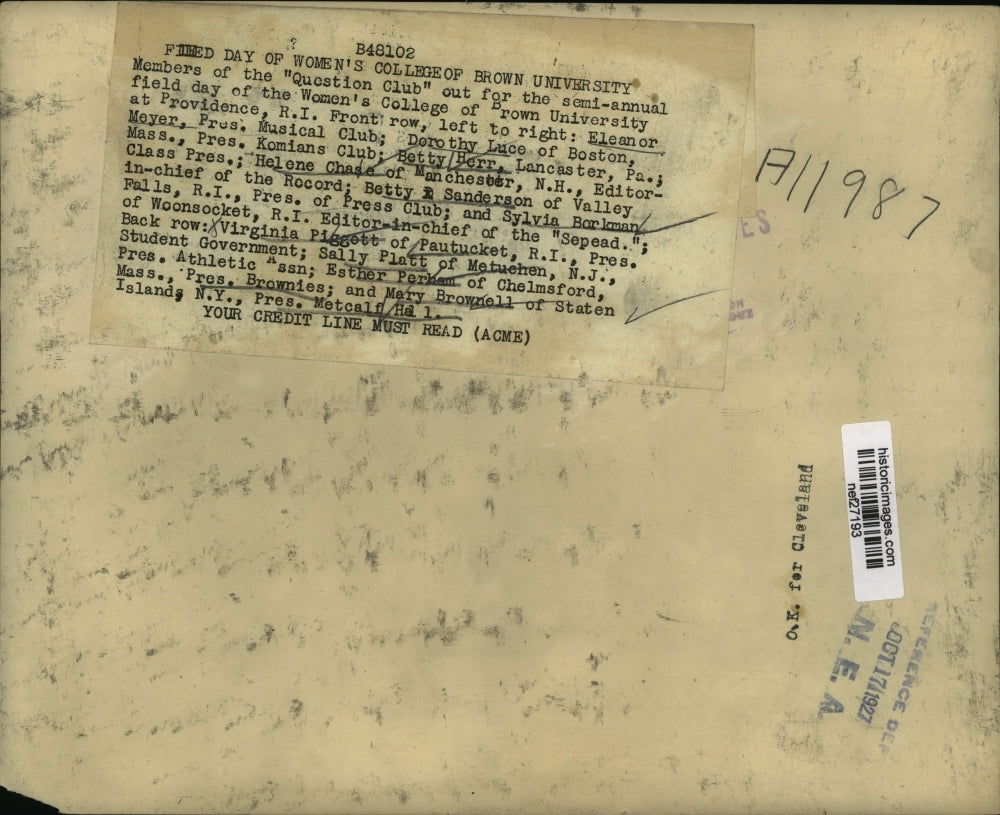 B48102
FIIEED DAY OF WOMEN'S COLLEGEOF BROWN UNIVERSITY
Members of the "Question Club" out for the semi-annual
field day of the Women's College of Brown University
at Providence, R.I. Front row, left to right: Eleanor
Meyer, Pres. Musical Club; Dorothy Luce of Boston,
Mass., Pres. Komians Club; Betty Herr, Lancaster, Pa.;
Class Pres.; Helene Chase of Manchester, N.H., Editor-
in-chief of the Rocord; Betty R Sanderson of Valley
Falls, R.I., Pres. of Press Club; and Sylvia Borkman
of Woonsocket, R.I. Editor-in-chief of the "Sepead.";
Back row: Virginia Piggott of Pautucket, R.I., Pres.
Student Government; Sally Platt of Metuchen, N.J.,
Pres. Athletic Assn; Esther Perham of Chelmsford,
Mass., Pres. Brownies; and Mary Brownell of Staten
Island, N.Y., Pres. Metcalf Hall.
YOUR CREDIT LINE MUST READ (ACME)
A11987
ES
historicimages.com
nef27193
O.K. for Cleveland
REFERENCE DEP
OCT 17 1927
N. E. A